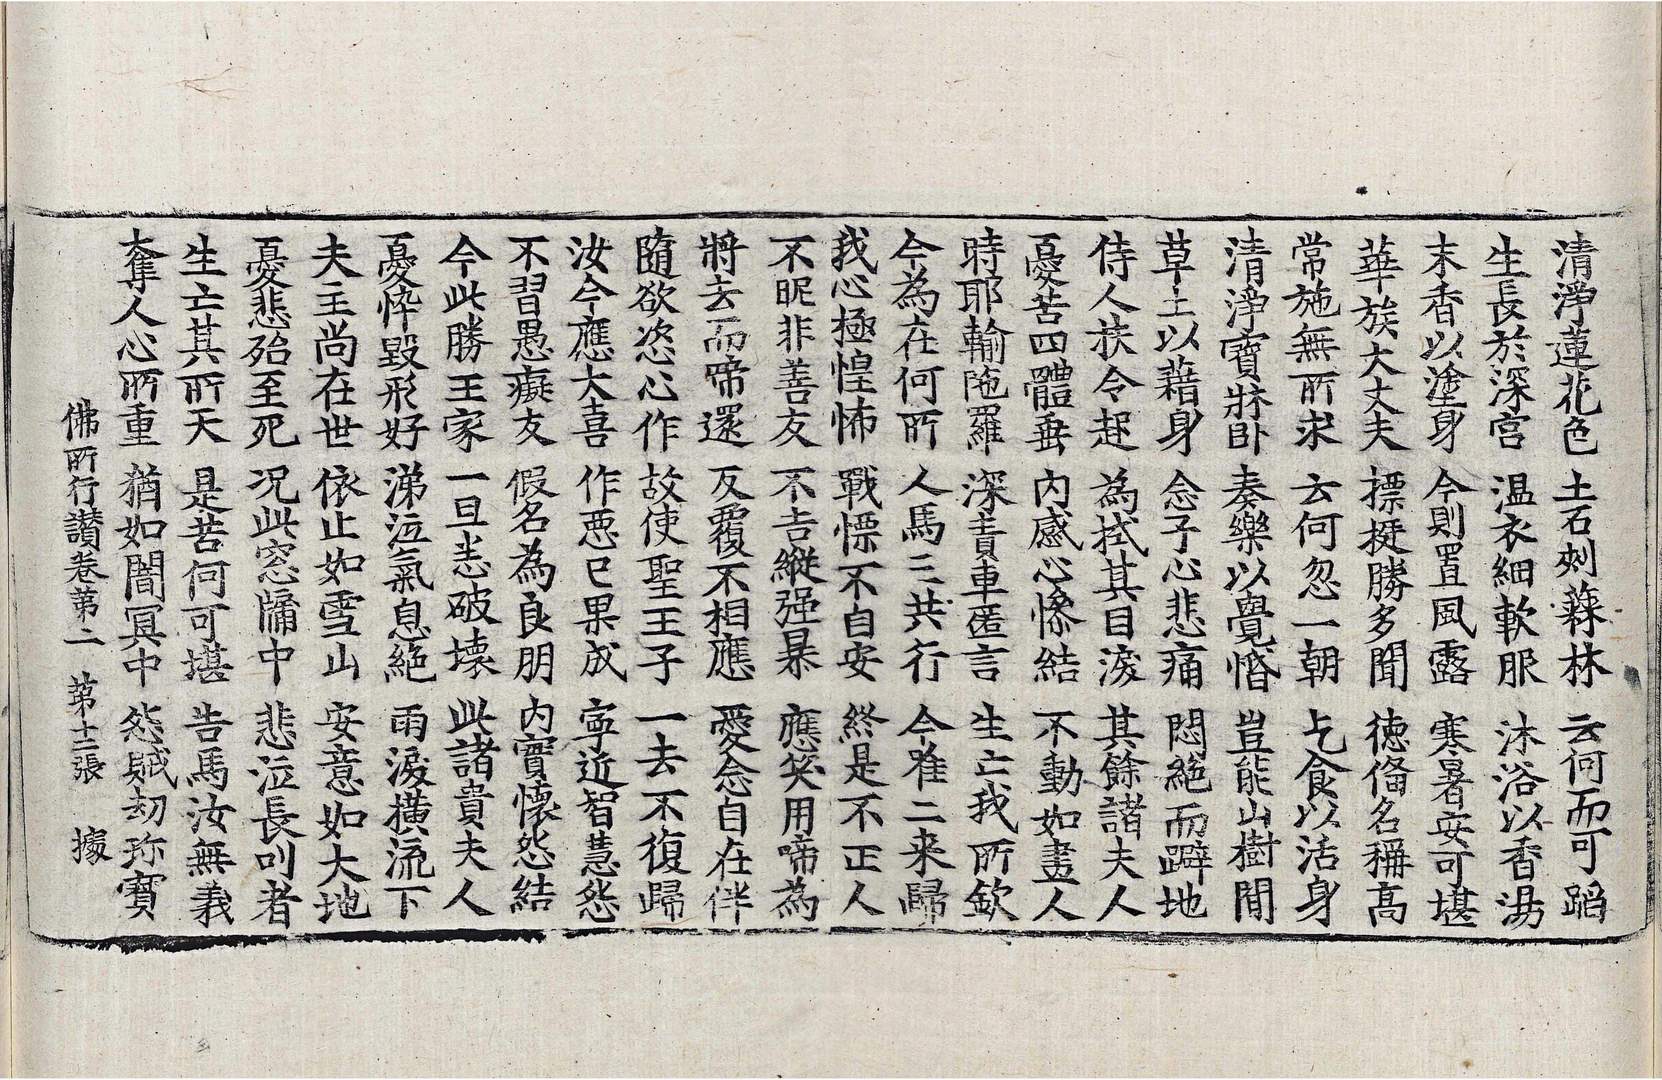 清淨蓮花色 土石刾蕀林 云何而可蹈
生長於深宮 温衣細軟服 沐浴以香湯
末香以塗身 今則置風露 寒暑安可堪
華族大丈夫 摽挺勝多聞 徳俻名稱高
常施無所求 云何忽一朝 乞食以活身
清淨寶牀卧 奏樂以覺惛 豈能山樹間
草土以藉身 念子心悲痛 悶絶而躃地
侍人扶令起 為拭其目淚 其餘諸夫人
憂苦四體垂 内感心慘結 不動如畫人
時耶輸陁羅 深責車匿言 生亡我所欽
今為在何所 人馬三共行 今唯二来歸
我心極惶怖 戰慄不自安 終是不正人
不昵非善友 不吉縱强暴 應笑用啼為
將去而啼還 反覆不相應 愛念自在伴
隨欲恣心作 故使聖王子 一去不復歸
汝今應大喜 作惡已果成 寧近智慧怨
不習愚癡友 假名為良朋 内實懷怨結
今此勝王家 一旦悉破壞 此諸貴夫人
憂悴毀形好 涕泣氣息絶 雨淚横流下
夫主尚在世 依止如雪山 安意如大地
憂悲殆至死 况此窓牖中 悲泣長叫者
生亡其所天 是苦何可堪 告馬汝無義
奪人心所重 猶如闇冥中 怨賊劫珎寳
佛所行讃卷第二 第十二張 㨿